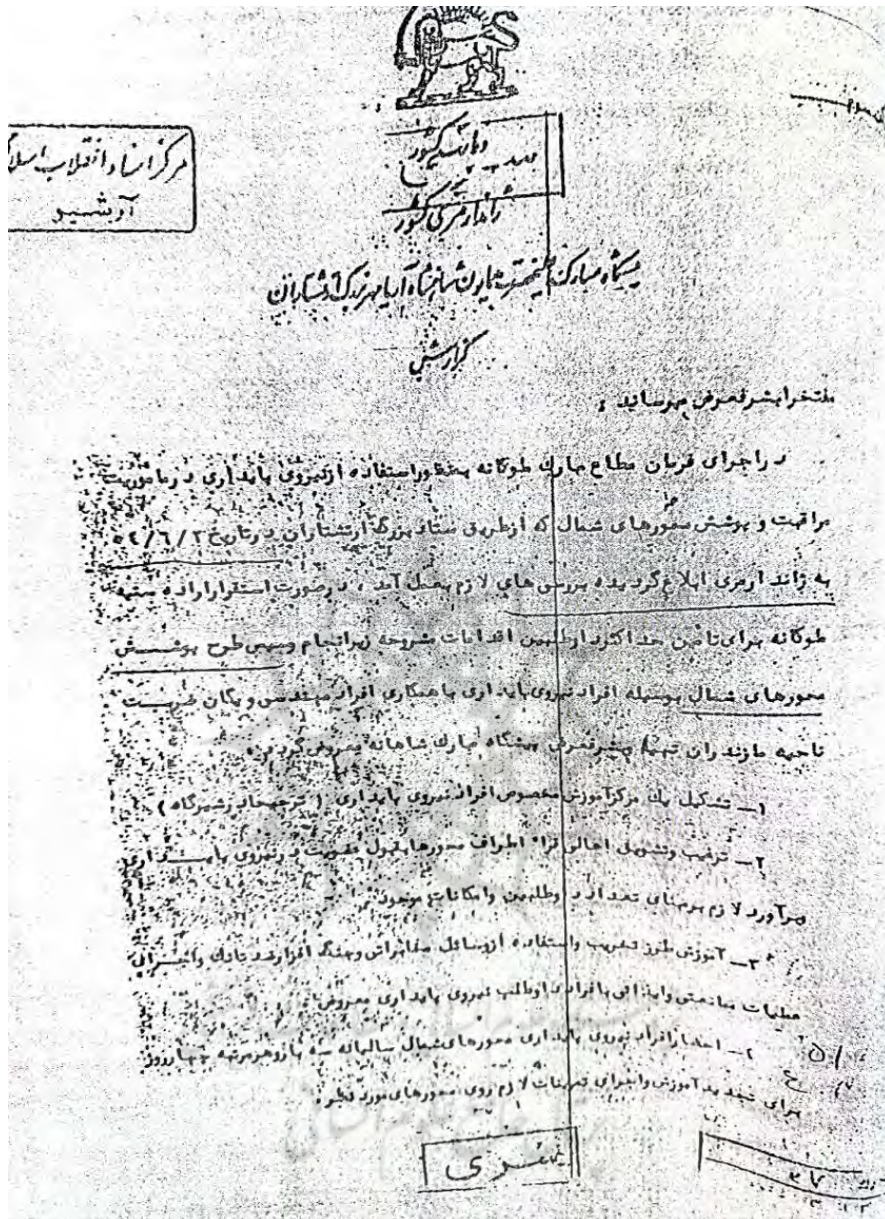 مرکز اسناد انقلاب اسلا
آرشیو
ژاندارمری کشور
پیشگاه مبارک اعلیحضرت همایون شاهنشاه آریامهر بزرگ ارتشتاران
گزارش
مفتخرا بشرفعرض میرساند :
در اجرای فرمان مطاع مبارك ملوکانه بمنظور استفاده از نیروی پایداری در ماموریت
مراقبت و پوشش محورهای شمال که از طریق ستاد بزرگ ارتشتاران در تاریخ ۵۲/۶/۲
به ژاندارمری ابلاغ گردیده بررسی های لازم بعمل آمد ، در صورت استقرار اراده سنیه
ملوکانه برای تامین حداکثر داوطلبین اقدامات مشروحه زیر انجام وسپس طرح پوشش
محورهای شمال بوسیله افراد نیروی پایداری با همکاری افراد مهندسی و یگان ضربت
ناحیه مازندران تهیه و بشرفعرض پیشگاه مبارك شاهانه معروض گردد .
۱ـ تشکیل یك مرکز آموزش مخصوص افراد نیروی پایداری ( ترجیحا در شیرگاه )
۲ـ ترغیب وتشویق اهالی قراء اطراف محورها بقبول عضویت در نیروی پایداری
برآورد لازم برمبنای تعداد داوطلبین وامکانات موجود .
۳ـ آموزش طرز تخریب واستفاده از وسائل مخابراتی وجنگ افزار ضد تانك و
عملیات ممانعتی وایذائی بافراد داوطلب نیروی پایداری
۴ـ احضار افراد نیروی پایداری محورهای شمال سالیانه سه بار وهر مرتبه چهار روز
برای تجدید آموزش واجرای تمرینات لازم روی محورهای مورد نظر .